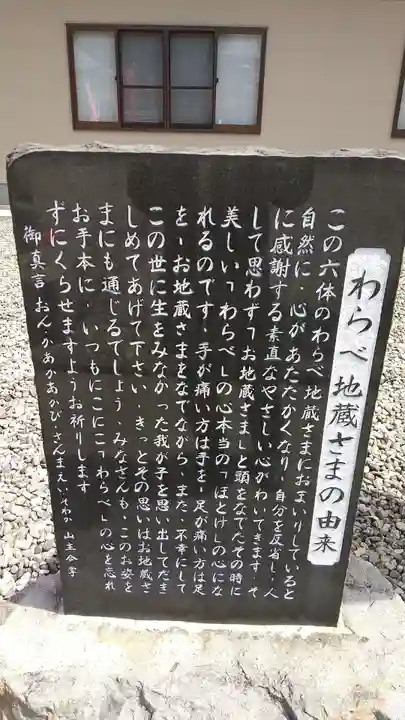 わらべ地蔵さまの由来
この六体のわらべ地蔵さまにおまいりしていると
自然に、心があたたかくなり、自分を反省し、人
に感謝する素直なやさしい心がわいてきます、そ
して思わず「お地蔵さま」と頭をなでたその時に
美しい「わらべ」の心本当の「ほとけ」の心にな
れるのです、手が痛い方は手を、足が痛い方は足
を、お地蔵さまをなでながら、また、不幸にして
この世に生をみなかった我が子を思い出してだき
しめてあげて下さい、きっとその思いはお地蔵さ
まにも通じるでしょう、みなさんも、このお姿を
お手本に、いつもにこにこ「わらべ」の心を忘れ
ずにくらせますようお祈りします
御真言 おんかあかあかびさんまえいそわか 山主合掌